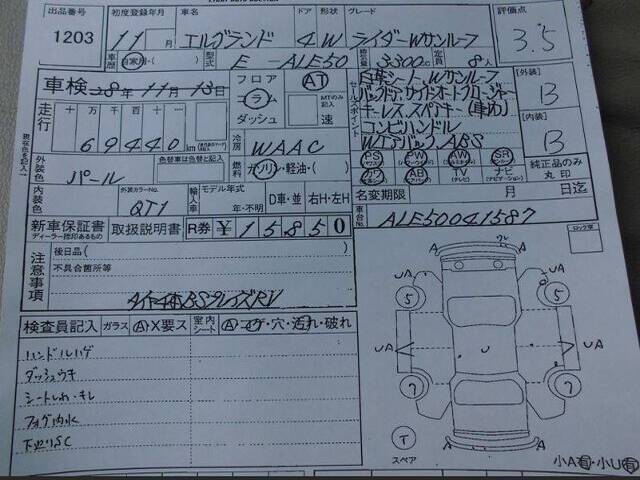 出品番号 初度登録年月 車名 ドア 形状 グレード 評価点
1203 11月 エルグランド 4W ライダーWサンルーフ 3.5
車歴 自家用・( ) 型式 E-ALE50 排気量 3,300cc 定員 8人
車検 28年11月13日 フロア AT 革シート、Wサンルーフ [外装]
コラム MTのみ記入 セールスポイント B
ダッシュ 速 キーレス、スペアキー(車内)
走行 十万千百十 コンビハンドル [内装]
69440km 冷房 WAAC ABS B
外装色 パール 色替車は色替と記入 燃料 ガソリン・軽油・( ) PS PW SR 純正品のみ
カワ AB TV ナビ 丸印
内装色 外装カラーNo. QT1 輸入車 モデル年式 年・不明 D車・並 右H・左H 名変期限 月 日迄
新車保証書 取扱説明書 R券 ¥15850 車台No. ALE50041587
ディーラー捺印あるもの
注意事項 後日品( )
不具合箇所等
タイヤ4本BSプレイズRV
検査員記入 ガラス A X要ス 室内シート A コゲ・穴・汚れ・破れ
ハンドルハゲ
ダッシュウキ
シートしわ・キレ
フォグ内水
下廻りSC
A A
UA UA
5 5
UA U UA
7 7
A A
T
スペア
小A有・小U有